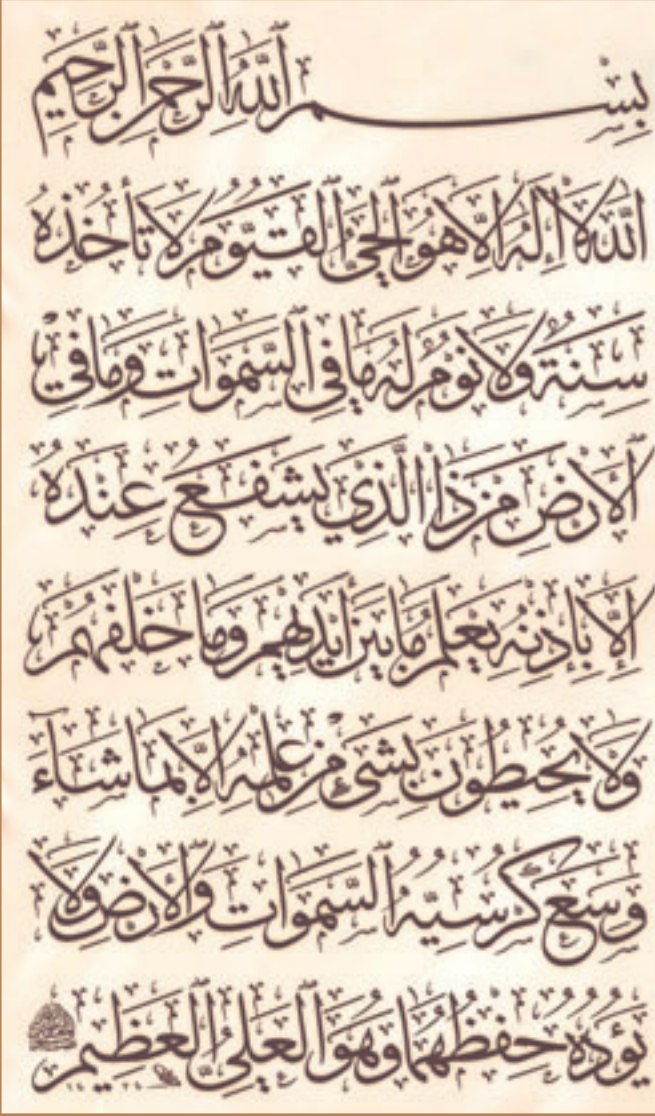 بِسْمِ اللّٰهِ الرَّحْمٰنِ الرَّحِيمِ
اَللّٰهُ لَا اِلٰهَ اِلَّا هُوَ الْحَىُّ الْقَيُّومُ لَا تَأْخُذُهُ
سِنَةٌ وَلَا نَوْمٌ لَهُ مَا فِي السَّمٰوَاتِ وَمَا فِي
الْاَرْضِ مَنْ ذَا الَّذِي يَشْفَعُ عِنْدَهُ
اِلَّا بِاِذْنِهِ يَعْلَمُ مَا بَيْنَ اَيْدِيهِمْ وَمَا خَلْفَهُمْ
وَلَا يُحِيطُونَ بِشَيْءٍ مِنْ عِلْمِهِ اِلَّا بِمَا شَاءَ
وَسِعَ كُرْسِيُّهُ السَّمٰوَاتِ وَالْاَرْضَ وَلَا
يَؤُدُهُ حِفْظُهُمَا وَهُوَ الْعَلِيُّ الْعَظِيمُ